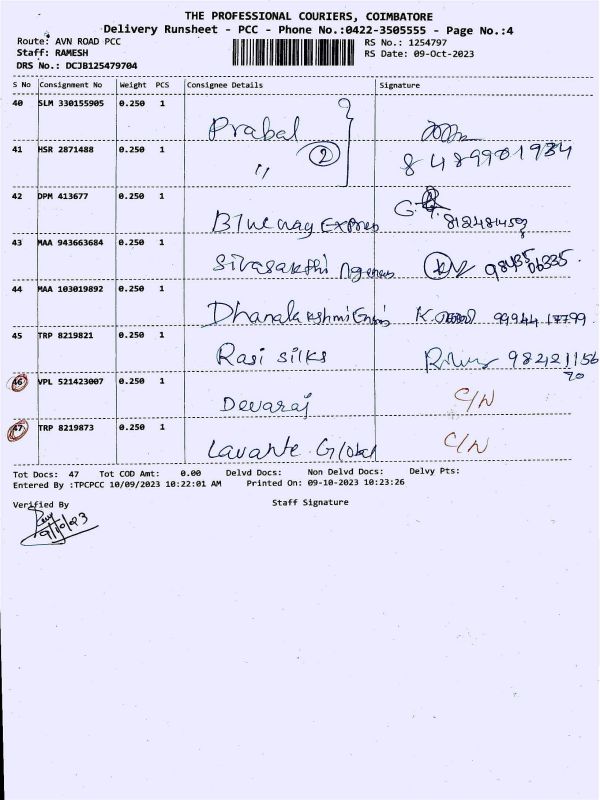 THE PROFESSIONAL COURIERS, COIMBATORE
Delivery Runsheet - PCC - Phone No.:0422-3505555 - Page No.:4
Route: AVN ROAD PCC RS No.: 1254797
Staff: RAMESH RS Date: 09-Oct-2023
DRS No.: DCJB125479704
S No Consignment No Weight PCS Consignee Details Signature
40 SLM 330155905 0.250 1 Prabal
41 HSR 2871488 0.250 1 " 2 8489901934
42 DPM 413677 0.250 1 Blueway Express
43 MAA 943663684 0.250 1 Sivasakthi
44 MAA 103019892 0.250 1 Dhanalakshmi 99944 17799
45 TRP 8219821 0.250 1 Rasi Silks
46 VPL 521423007 0.250 1 Devaraj C/N
47 TRP 8219873 0.250 1 Lavante Global C/N
Tot Docs: 47 Tot COD Amt: 0.00 Delvd Docs: Non Delvd Docs: Delvy Pts:
Entered By :TPCPCC 10/09/2023 10:22:01 AM Printed On: 09-10-2023 10:23:26
Verified By Staff Signature
9/10/23